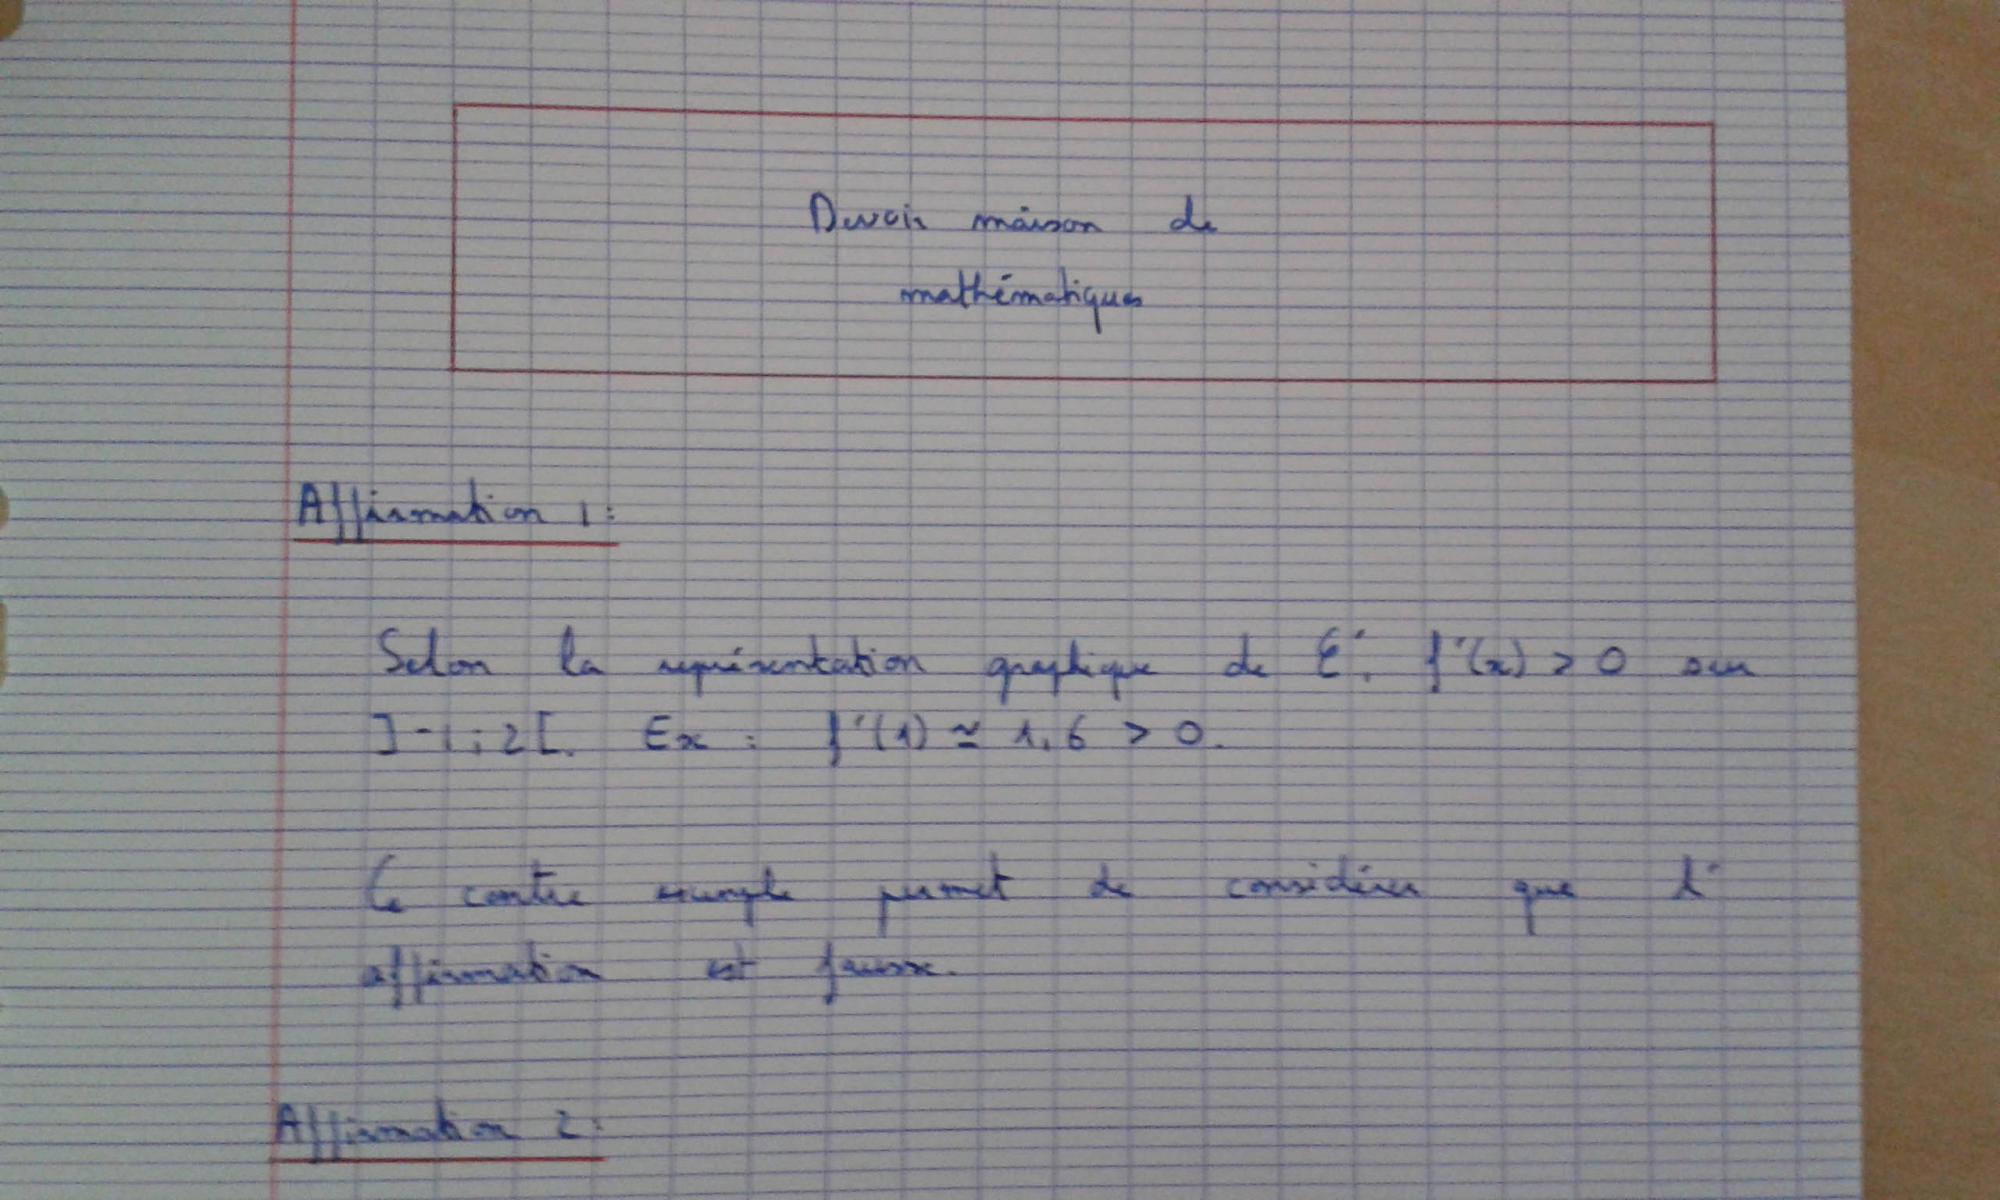 Devoir maison de
mathématiques
Affirmation 1:
Selon la représentation graphique de C'. f'(x) > 0 sur
]-1;2[. Ex : f'(1) ≃ 1,6 > 0.
Ce contre exemple permet de considérer que l'
affirmation est fausse.
Affirmation 2: